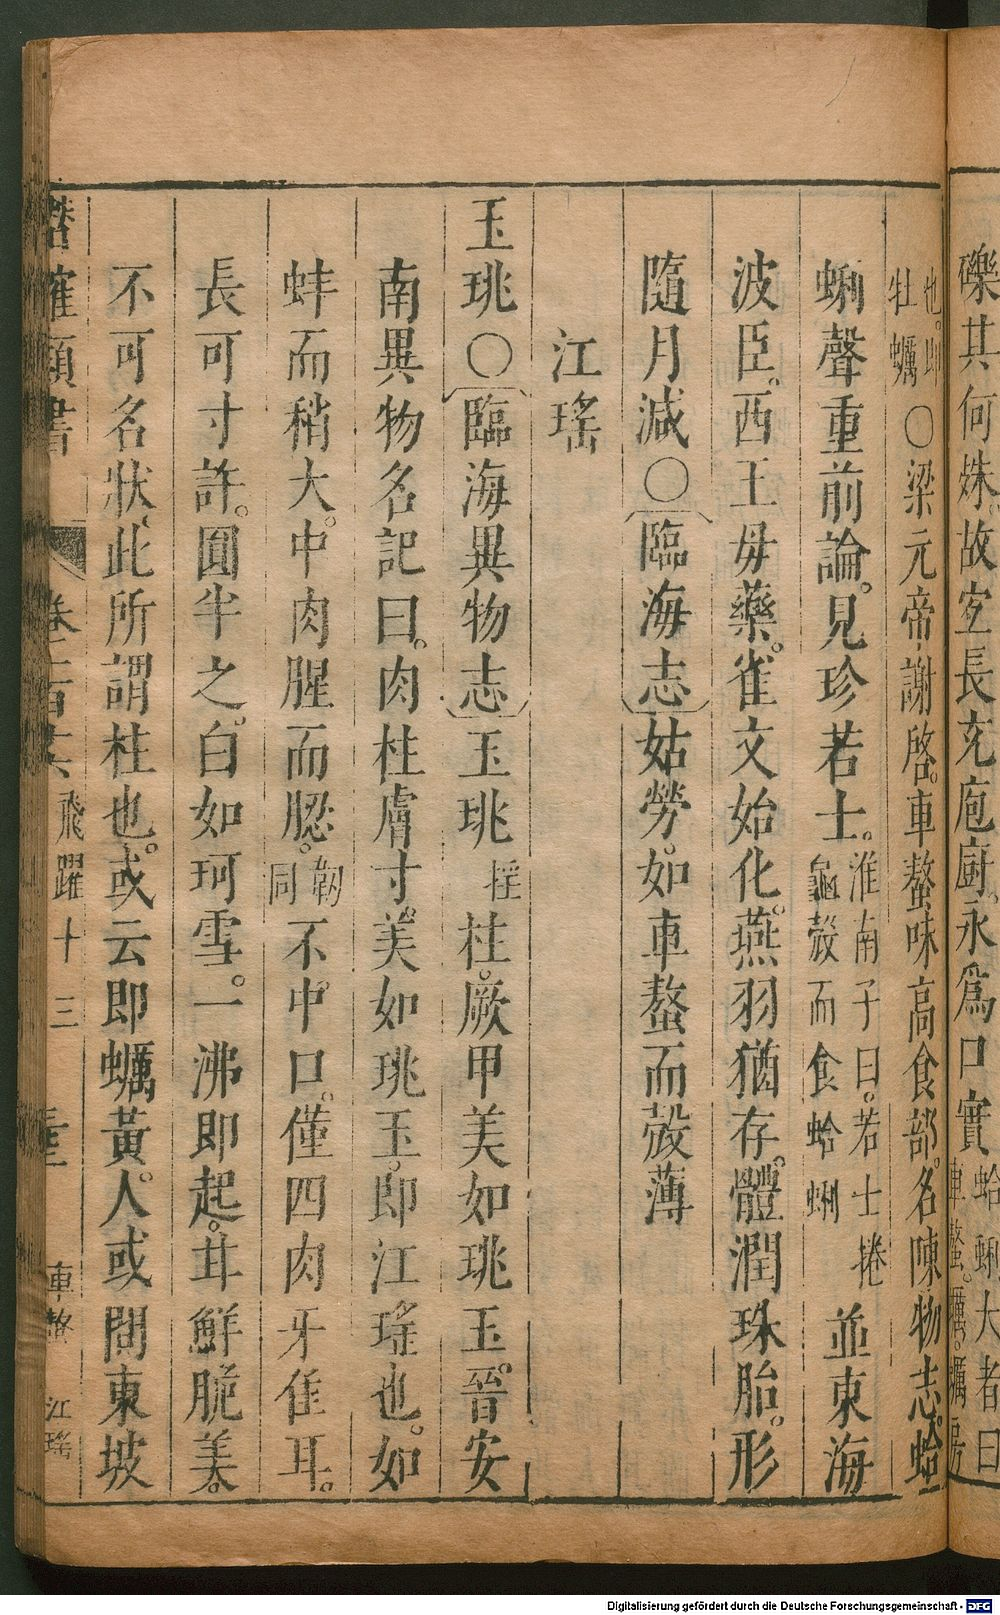 礫其何殊。故宜長充庖廚。永爲口實蛤蜊大者曰
車螯。蠣。濿房
牡蠣也。即○梁元帝謝啓。車螯味高食部。名陳物志。蛤
蜊聲重前論。見珍若士。淮南子曰。若士捲龜殼而食蛤蜊並東海
波臣。西王母藥。雀文始化。燕羽猶存。體潤珠胎。形
隨月減○臨海志姑勞。如車螯而殼薄
江瑤
玉珧○臨海異物志玉珧柱。厥甲美如珧玉。晉安
南異物名記曰。肉柱膚寸。美如珧玉。即江瑤也。如
蚌而稍大。中肉腥而䏰。韌同不中口。僅四肉牙佳耳。
長可寸許。圓半之。白如珂雪。一沸即起。甘鮮脆美。
不可名狀。此所謂柱也。或云即蠣黃。人。或問東坡
潛確類書 卷一百 飛躍十三 車螯 江瑤
Digitalisierung gefördert durch die Deutsche Forschungsgemeinschaft - DFG